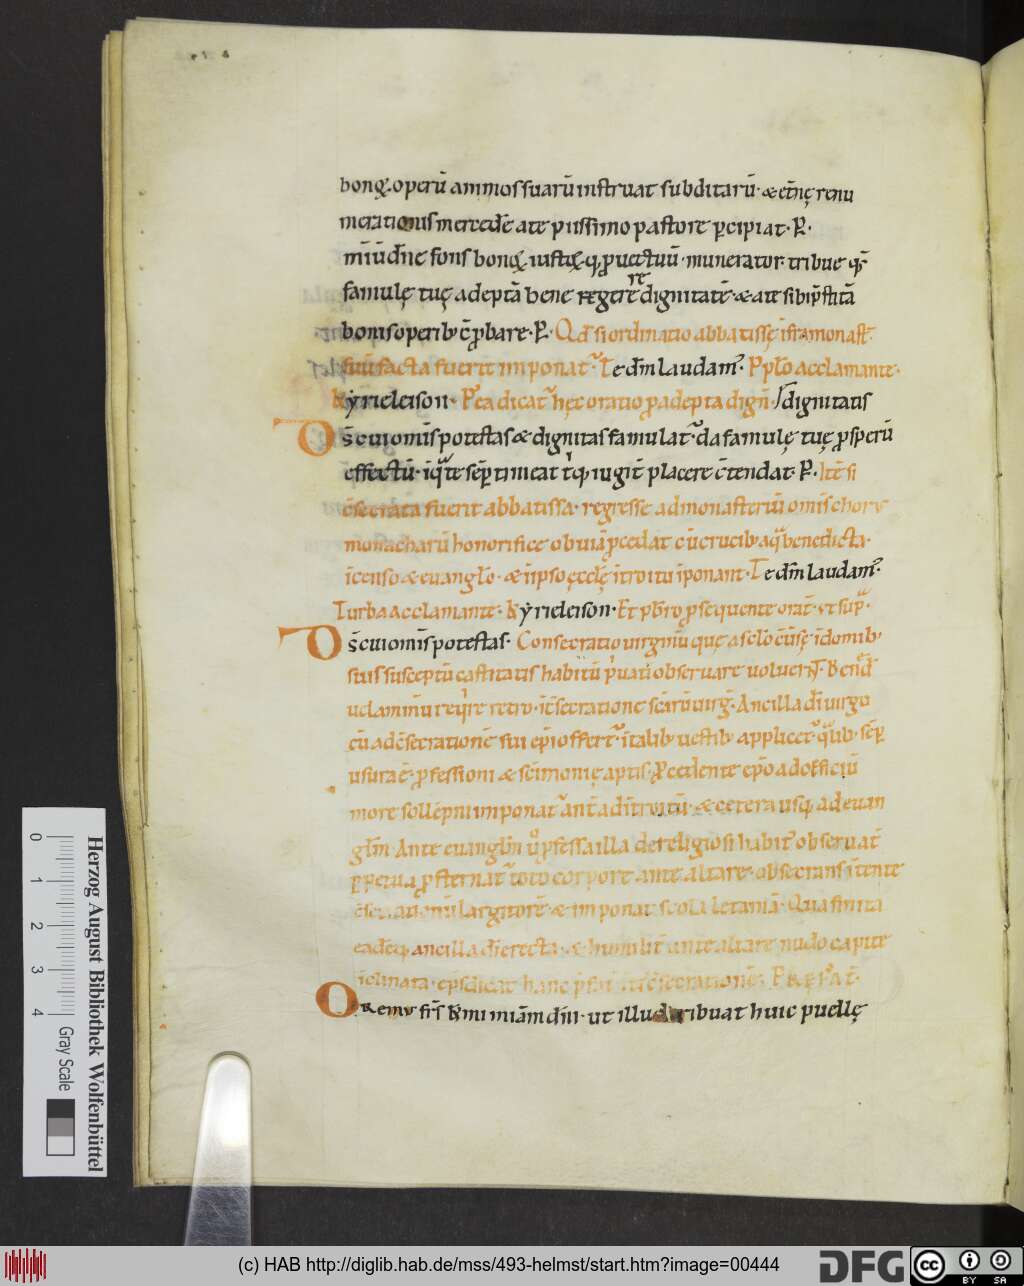 bonoꝝ operū animos suarū instruat subditarū· & et̄nę renu
merationis mercedē a te piissimo pastore ꝑcipiat· P̲.
n̄iū dn̄e fons bonoꝝ iustoꝝq; ꝓuectuū· munerator· tribue qs̄
famulę tuę adeptā bene regere dignitatē· & a te sibi p̄stitā
bonis operib; c̄ꝓbare· P̲. Qd̄ si ordinatio abbatissę ī stᵃ monast̄
suū facta fuerit imponat᷑· Te dm̄ laudam᷒. P̲plo acclamante·
Kyrieleison· P᷒ea dicat᷑ hęc oratio ꝓ adepta dign̄· dignitatis
Ds̄ cui om̄is potestas & dignitas famulat᷑· da famulę tuę ꝓsperū
effectū· ī qͣ te semp̲ timeat t̄q; iugit̄ placere c̄tendat· P̲. Itē si
c̄secrata fuerit abbatissa· regresse ad monasteriū om̄is chorus
monacharū honorifice obuiā ꝓcedat cū crucib; aqͣ benedicta·
īcenso & euanglo· & ī ipso ęcclę īntroitu īponant· Te dm̄ laudam᷒.
Turba acclamante· Kyrieleison· Et pb̄ro ꝓsequente orat̄· ut sup̲ᵃ.
Ds̄ cui om̄is potestas· Consecratio uirginū quę a sclo c̄uersę ī domib;
suis susceptū castitatis habitū p̲uati obseruare uoluerint· Bened̄
uelaminū reqͥre retro· ī c̄secratione scarū uirḡ· Ancilla di uirgo
cū ad c̄secrationē sui epi offert᷑· ī talib; uestib; applicet᷑ qͣlib; semp̲
usura ē· ꝓfessioni & sc̄imonię aptis· ꝓcedente ep̄o ad officiū
more sollēpni imponat᷑ ant̄ ad īntroitū· & cetera usq; ad euan
glm̄ Ante euanglm̄ ꝓfessa illa de religiosi habit᷒ obseruat̄
ꝑpetua ꝓsternat᷑ toto corpore ante altare· obsecrans ītente
c̄secrationū largitorē· & imponat scola letaniā· Qua finita
eadēq; ancilla di erecta· & humilit̄ ante altare nudo capite
īclinata· ep̄s dicat hanc
Oremus fr̄s k̄mi miām dn̄i· ut illud tribuat huic puellę
Herzog August Bibliothek Wolfenbüttel
0 1 2 3 4 Gray Scale
(c) HAB http://diglib.hab.de/mss/493-helmst/start.htm?image=00444
DFG cc BY SA